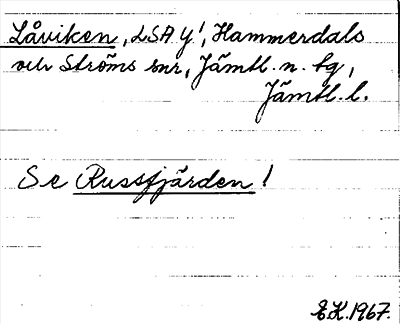 Låviken, LSA y!, Hammerdals
och Ströms snr, Jämtl. n. tg,
Jämtl. l.
Se Russfjärden!
E.K. 1967.